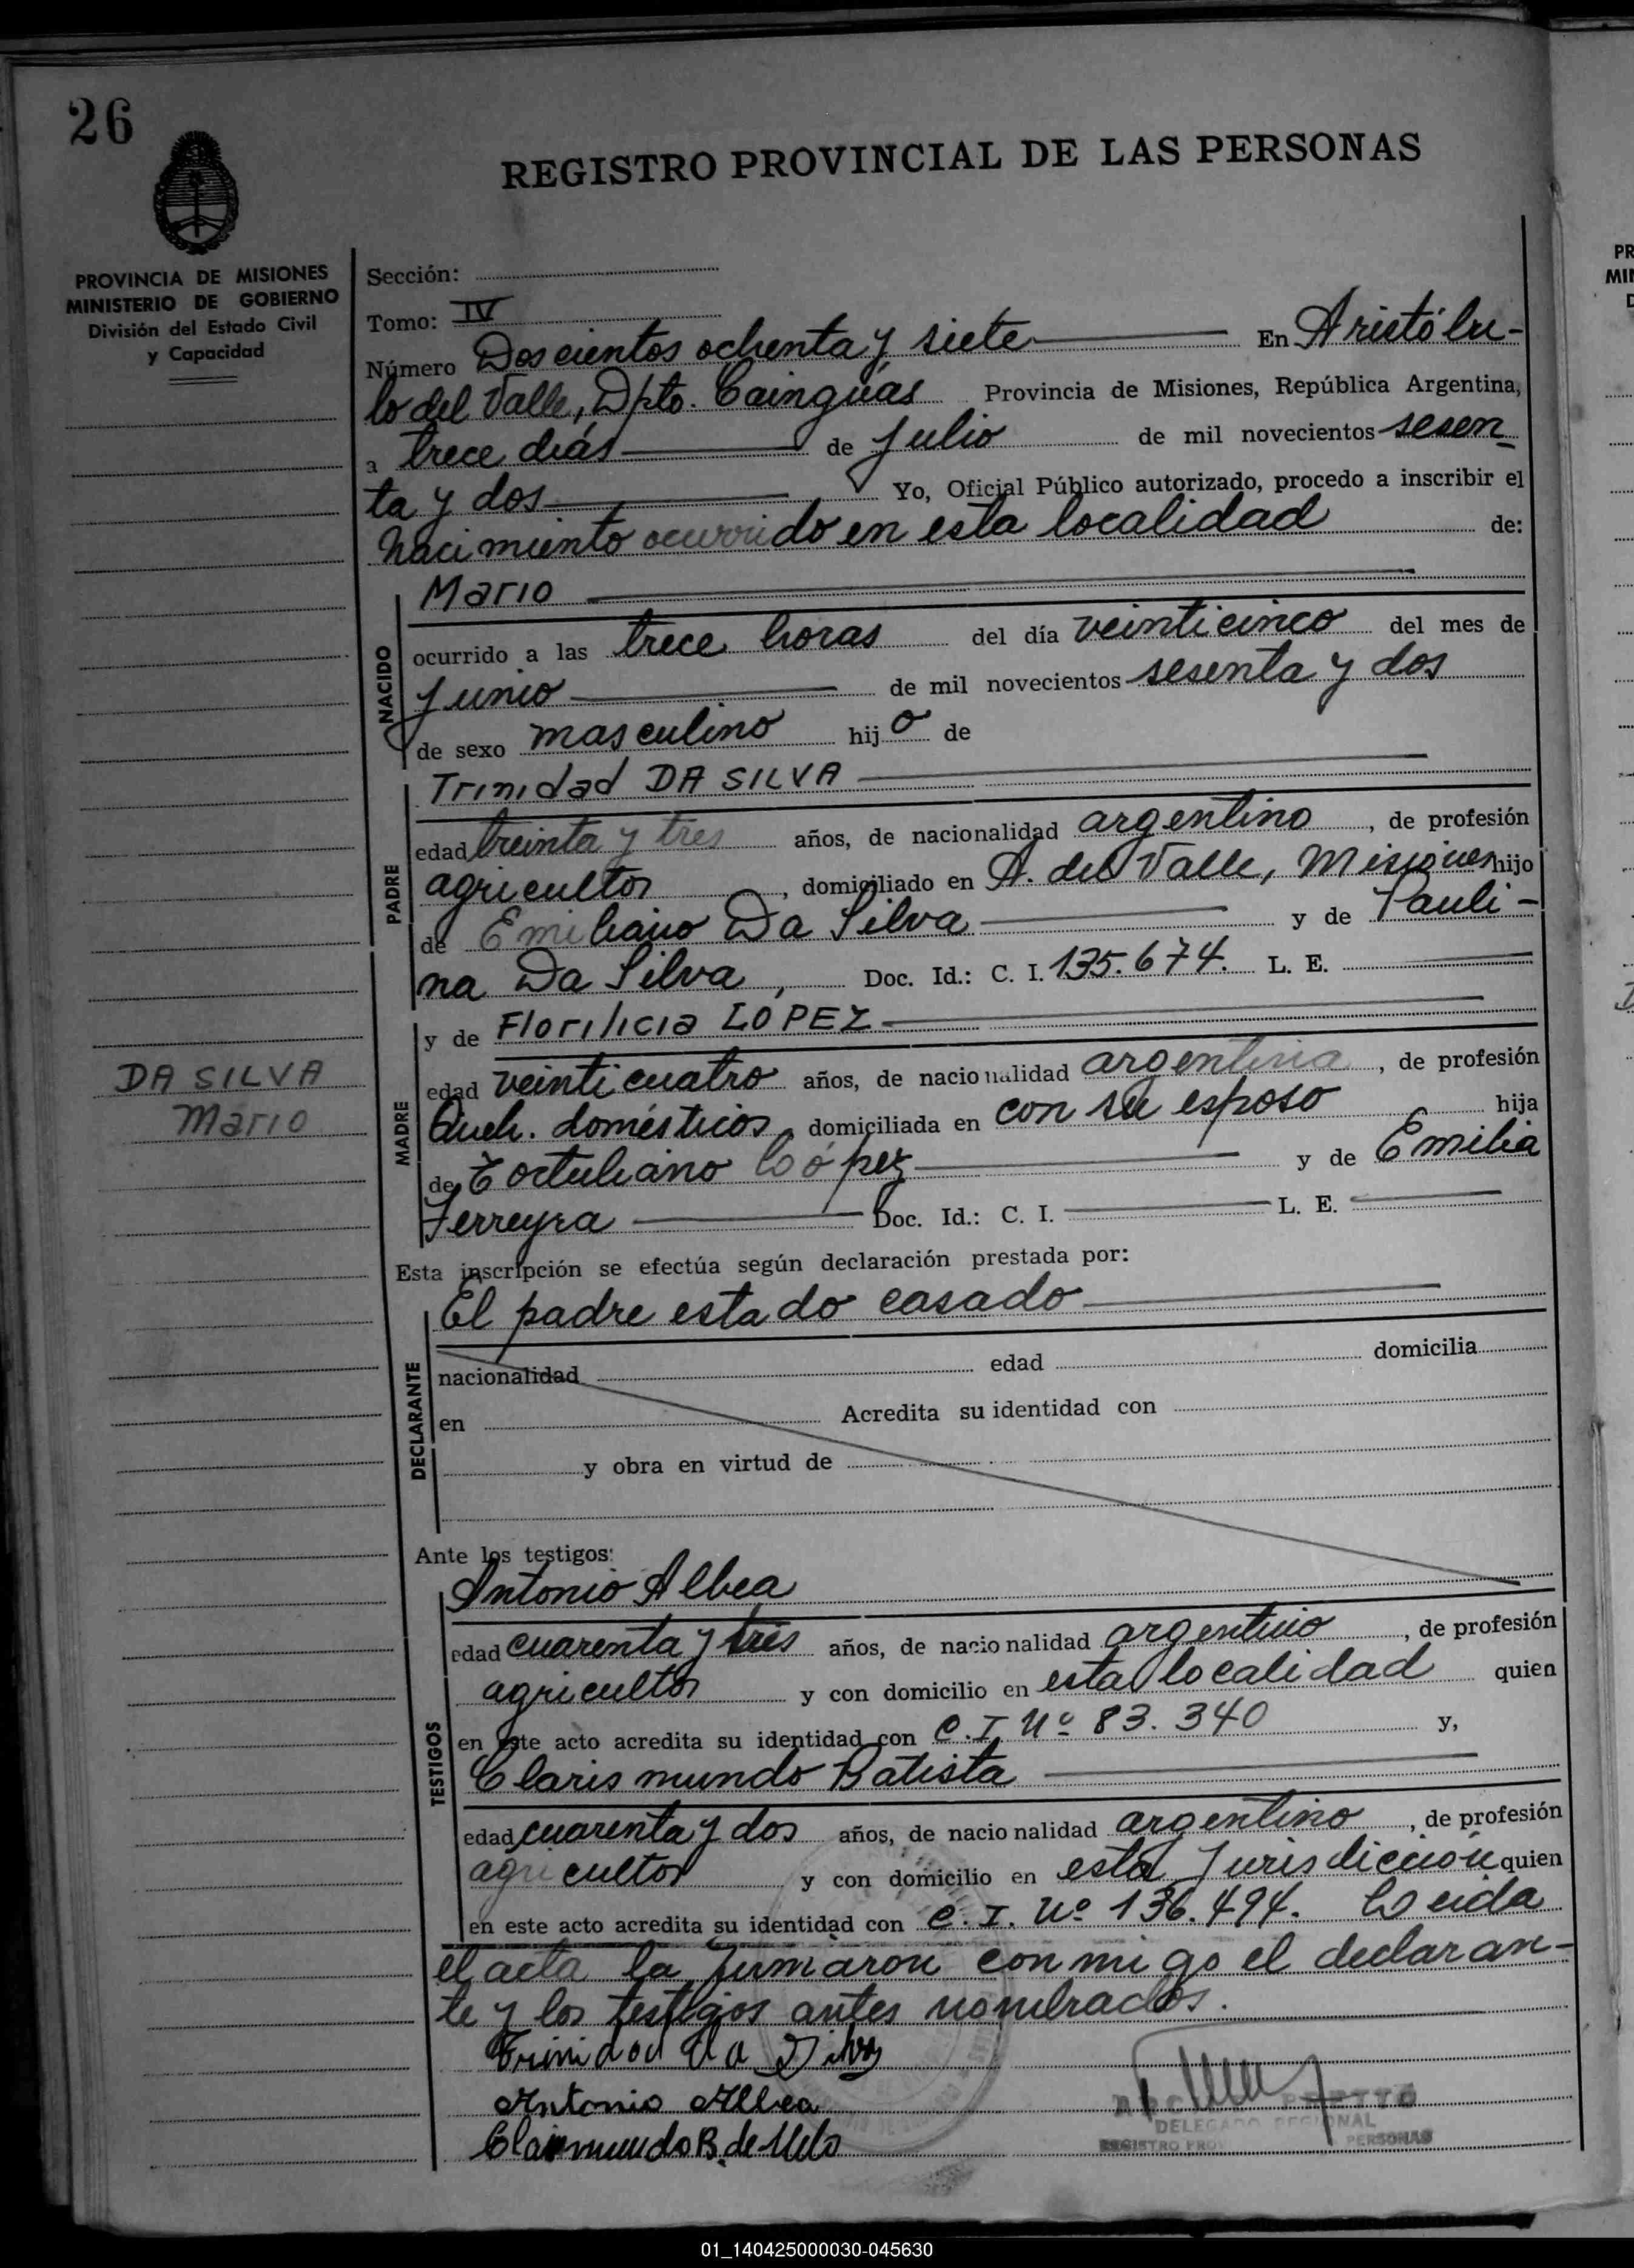 26
REGISTRO PROVINCIAL DE LAS PERSONAS
PROVINCIA DE MISIONES
MINISTERIO DE GOBIERNO
División del Estado Civil
y Capacidad
Sección:
Tomo: IV
Número Doscientos ochenta y siete En Aristólu-
lo del Valle, Dpto. Cainguás Provincia de Misiones, República Argentina,
a trece dias de Julio de mil novecientos sesen
ta y dos Yo, Oficial Público autorizado, procedo a inscribir el
nacimiento ocurrido en esta localidad de:
NACIDO
Mario
ocurrido a las trece horas del día veinticinco del mes de
Junio de mil novecientos sesenta y dos
de sexo masculino hijo de
PADRE
Trinidad DA SILVA
edad treinta y tres años, de nacionalidad argentino, de profesión
agricultor, domiciliado en A. del Valle, Misiones hijo
de Emiliano Da Silva y de Pauli-
na Da Silva, Doc. Id.: C. I. 135.674. L. E.
MADRE
y de Florilicia LOPEZ
edad veinticuatro años, de nacionalidad argentina, de profesión
Queh. domésticos, domiciliada en con su esposo hija
de Tortuliano López y de Emilia
Ferreyra Doc. Id.: C. I. L. E.
DA SILVA
Mario
Esta inscripción se efectúa según declaración prestada por:
DECLARANTE
El padre estado casado
nacionalidad edad domicilia
en Acredita su identidad con
y obra en virtud de
Ante los testigos:
TESTIGOS
Antonio Albea
edad cuarenta y tres años, de nacionalidad argentino, de profesión
agricultor y con domicilio en esta localidad quien
en este acto acredita su identidad con C.I. Nº 83.340 y,
Clarismundo Batista
edad cuarenta y dos años, de nacionalidad argentino, de profesión
agricultor y con domicilio en esta Jurisdicción quien
en este acto acredita su identidad con C.I. Nº 136.494. Leida
el acta la firmaron conmigo el declaran-
te y los testigos antes nombrados.
Trinidad da Silva
Antonio Albea
Clarismundo B. de Melo
DELEGADO REGIONAL
REGISTRO PERSONAS
01_140425000030-045630